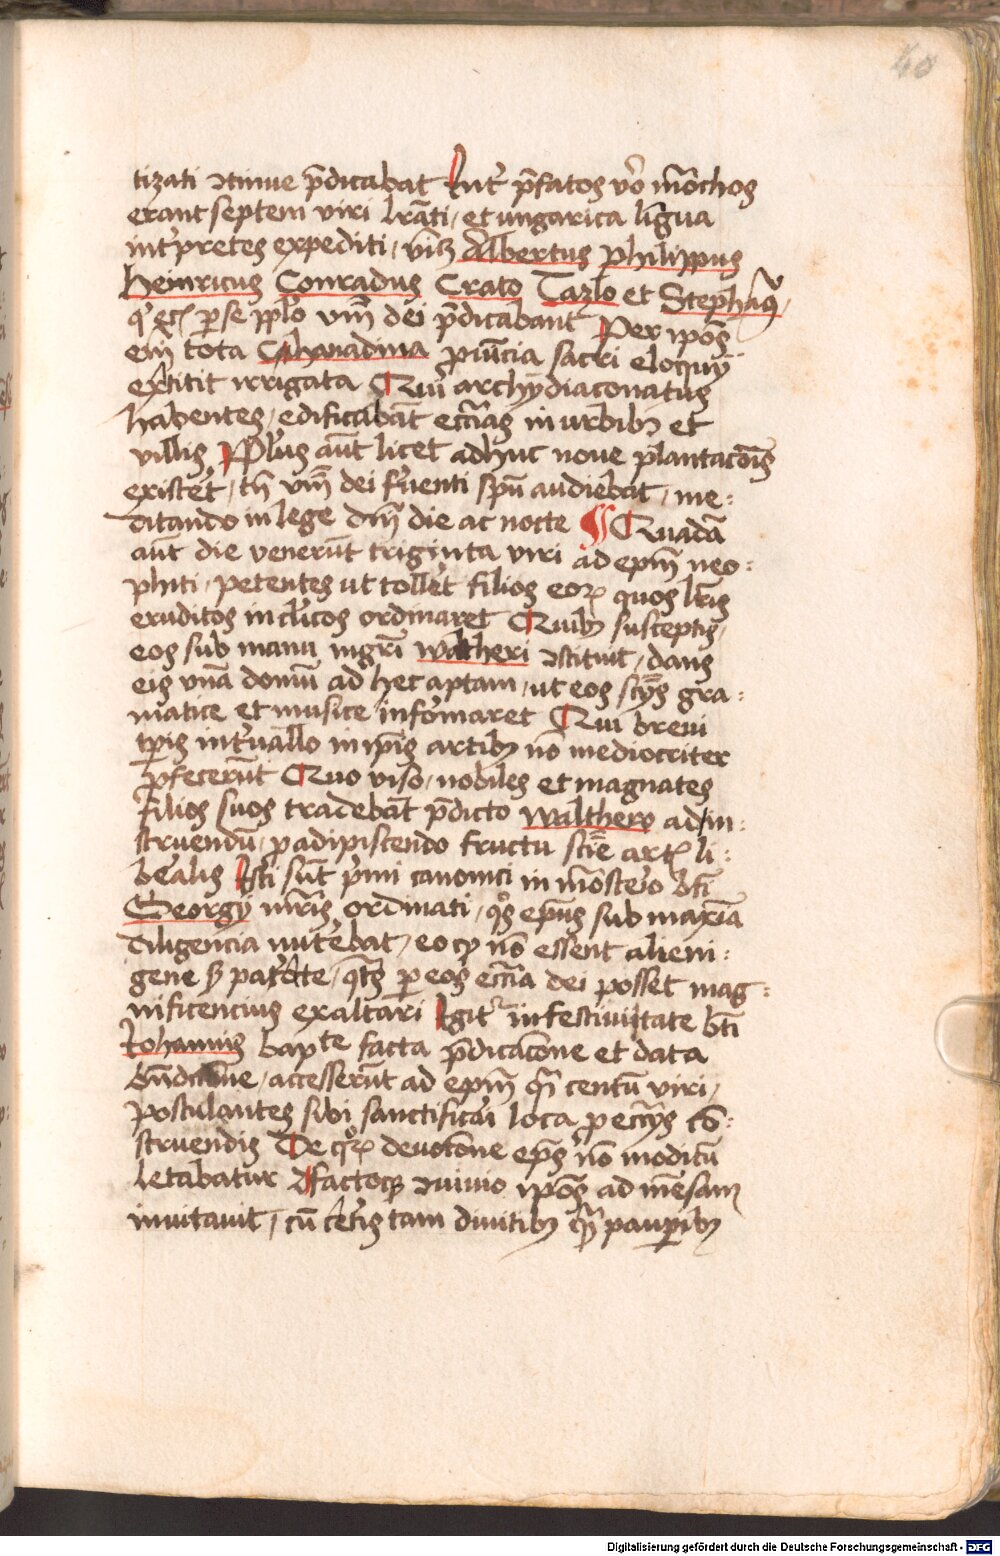 40
tizati ꝯtinue p̄dicabat Int͛ p̄fatos v̊o mōchos
erant septem viri lr̄ati / et ungarica lingua
int͛pretes expediti / vꝫ Albertus Philippus
Heinricus Conradus Crato Tazlo et Stephaꝰ /
q͛ ec̄ ꝑ se pplo vm̄ dei p̄dicabant Per ipōs
em̄ tota Chanadina ꝓuīcia sacri eloquij
extitit irrigata Qui archydiaconatus
habentes / edificabāt ecc̄ias in urbibꝫ et
villis Plus aūt licet adhuc noue plantacōis
existēt / tn̄ vm̄ dei f͛uenti spū audiebāt / me:
ditando in lege dn̄i die ac nocte ¶ Quadā
aūt die venerūt triginta viri ad epm̄ neo:
phiti / petentes ut tollet filios eoꝝ quos lr̄is
eruditos in cl͛icos ordinaret Quibꝫ susceptis /
eos sub manu mgr̄i waltheri ꝯstituit / dans
eis vnā domū ad hec aptam / ut eos scīs gra:
matice et musice informaret Qui breui
tp̄is int͛uallo in ip̄is artibꝫ nō mediocriter
ꝓfecerūt Quo viso / nobiles et magnates
filios suos tradebāt p̄dicto walthero ad in:
struendū / ꝓ adipiscendo fructu scīe artꝫ li:
b͛alis Isti sūt p͛mi canonici in mōst͛io bt̄i
Georgij m̄ris ordinati / q̊s ep̄us sub maxīa
diligencia nut͛ebat / eo ꝙ nō essent alieni:
gene sꝫ pat͛ote / qt͛s ꝑ eos ecc̄ia dei posset mag:
nificencius exaltari Igit͛ in festiuitate bt̄i
Iohannis bapte facta p̄dicacōne et data
bn̄dictōne / accesserūt ad epm̄ qͣ centū viri /
postulantes sibi sanctificari loca ꝓ ecc̄ijs cō:
struendis De qͦꝝ deuotōne eps̄ nō modicū
letabatur ffactoqꝫ ꝯuiuio ipōs ad mēsam
inuitauit / cū cet͛is tam diuitibꝫ qͣ pauꝑibꝫ
Digitalisierung gefördert durch die Deutsche Forschungsgemeinschaft - DFG